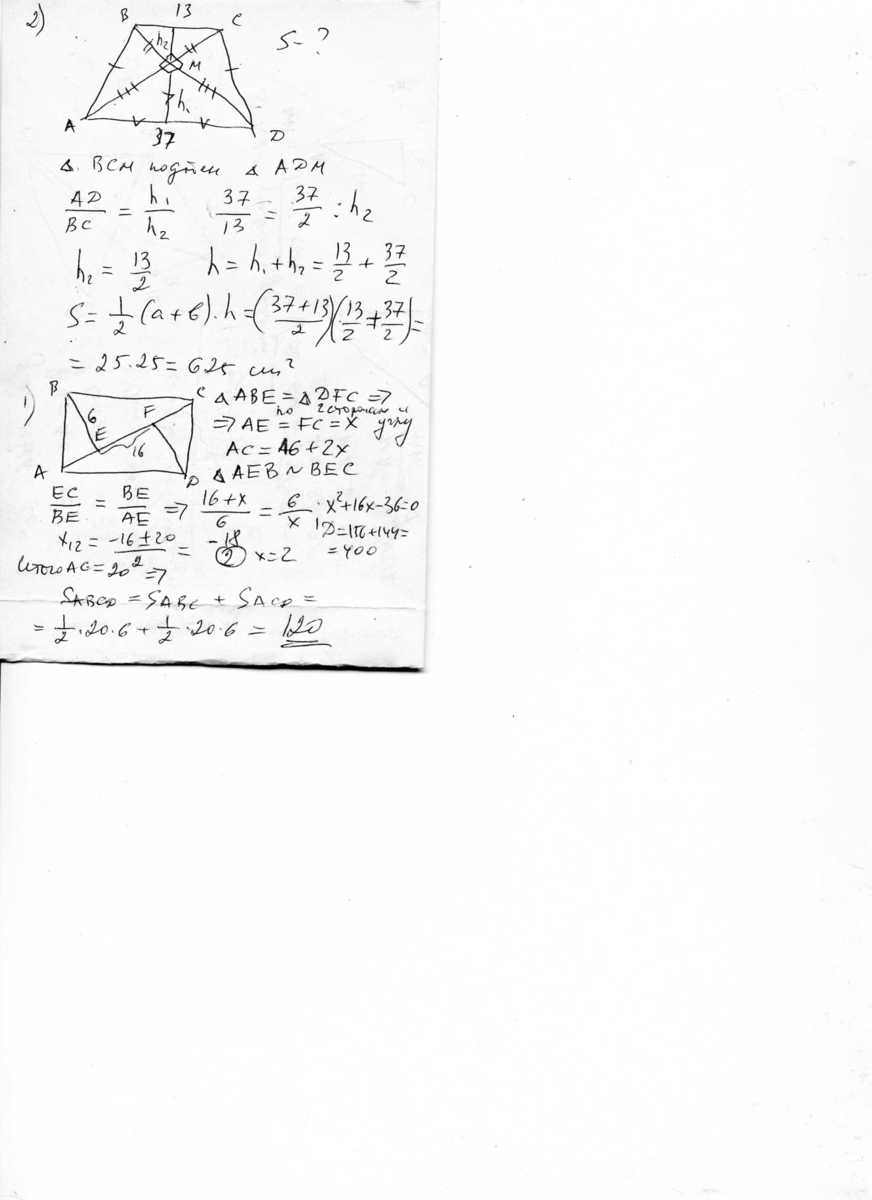 2)
B 13 C
h₂
M
S - ?
h₁
A 37 D
Δ BCM подобен Δ ADM
AD/BC = h₁/h₂ 37/13 = 37/2 : h₂
h₂ = 13/2 h = h₁ + h₂ = 13/2 + 37/2
S = 1/2 (a + b) · h = ((37 + 13)/2)(13/2 + 37/2) =
= 25 · 25 = 625 cm²
1)
B C
6 F
E
16
A D
Δ ABE = Δ DFC ⇒
по 2 сторонам и углу
⇒ AE = FC = X
AC = 16 + 2x
Δ AEB ~ BEC
EC/BE = BE/AE ⇒ (16 + x)/6 = 6/x · x² + 16x - 36 = 0
D = 156 + 144 =
= 400
x₁₂ = (-16 ± 20)/2 = -18
2 x = 2
Итого AC = 20 ⇒
SABCD = SABC + SACD =
= 1/2 · 20 · 6 + 1/2 · 20 · 6 = 120